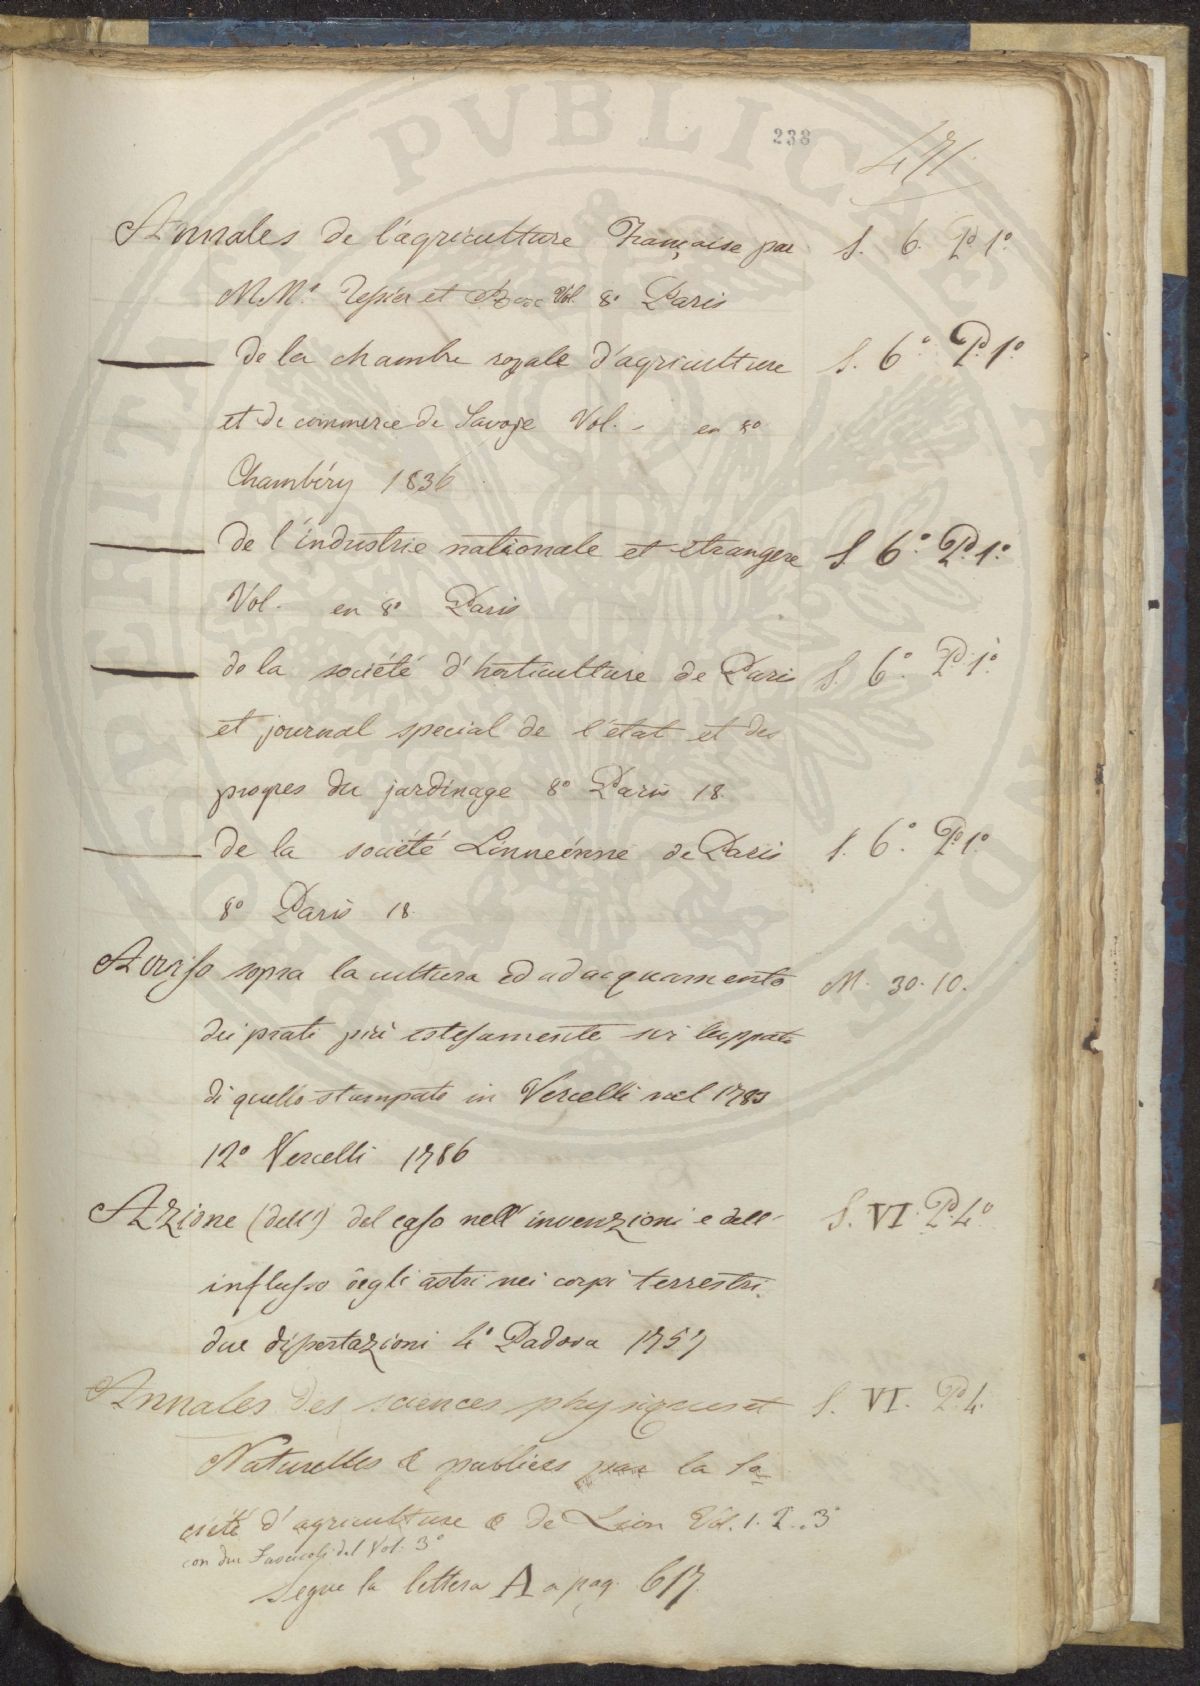 238
471
Annales de l'agriculture Française par S. 6. Po. 1o.
M.Mrs. Tessier et Bosc Vol. 8o Paris
——— de la chambre royale d'agriculture S. 6o. Po. 1o
et de commerce de Savoje Vol. - en 8o
Chambéry 1836
——— de l'industrie nationale et etrangere S 6o. Po. 1o.
Vol. en 8o Paris
——— de la société d'horticulture de Paris S. 6o. Po. 1o.
et journal special de l'état et des
progres du jardinage 8o Paris 18.
——— de la société Linneénne de Paris S. 6o. Po 1o.
8o Paris 18.
Avviso sopra la cultura ed adacquamento M. 30. 10.
dei prati più estesamente sviluppato
di quello stampato in Vercelli nel 1783
12o Vercelli 1786
Azione (dell') del caso nell'invenzioni e dell' S. VI. Po. 4o
influsso degli astri nei corpi terrestri.
due dissertazioni 4o Padova 1757
Annales des sciences physiques et S. VI. Po. 4.
Naturelles & publiées par la So=
cieté d'agriculture & de Lion Vol. 1. 2. 3o
con due Fascicoli del Vol. 3o
Segue la lettera A a pag. 617.
PVBLICAE